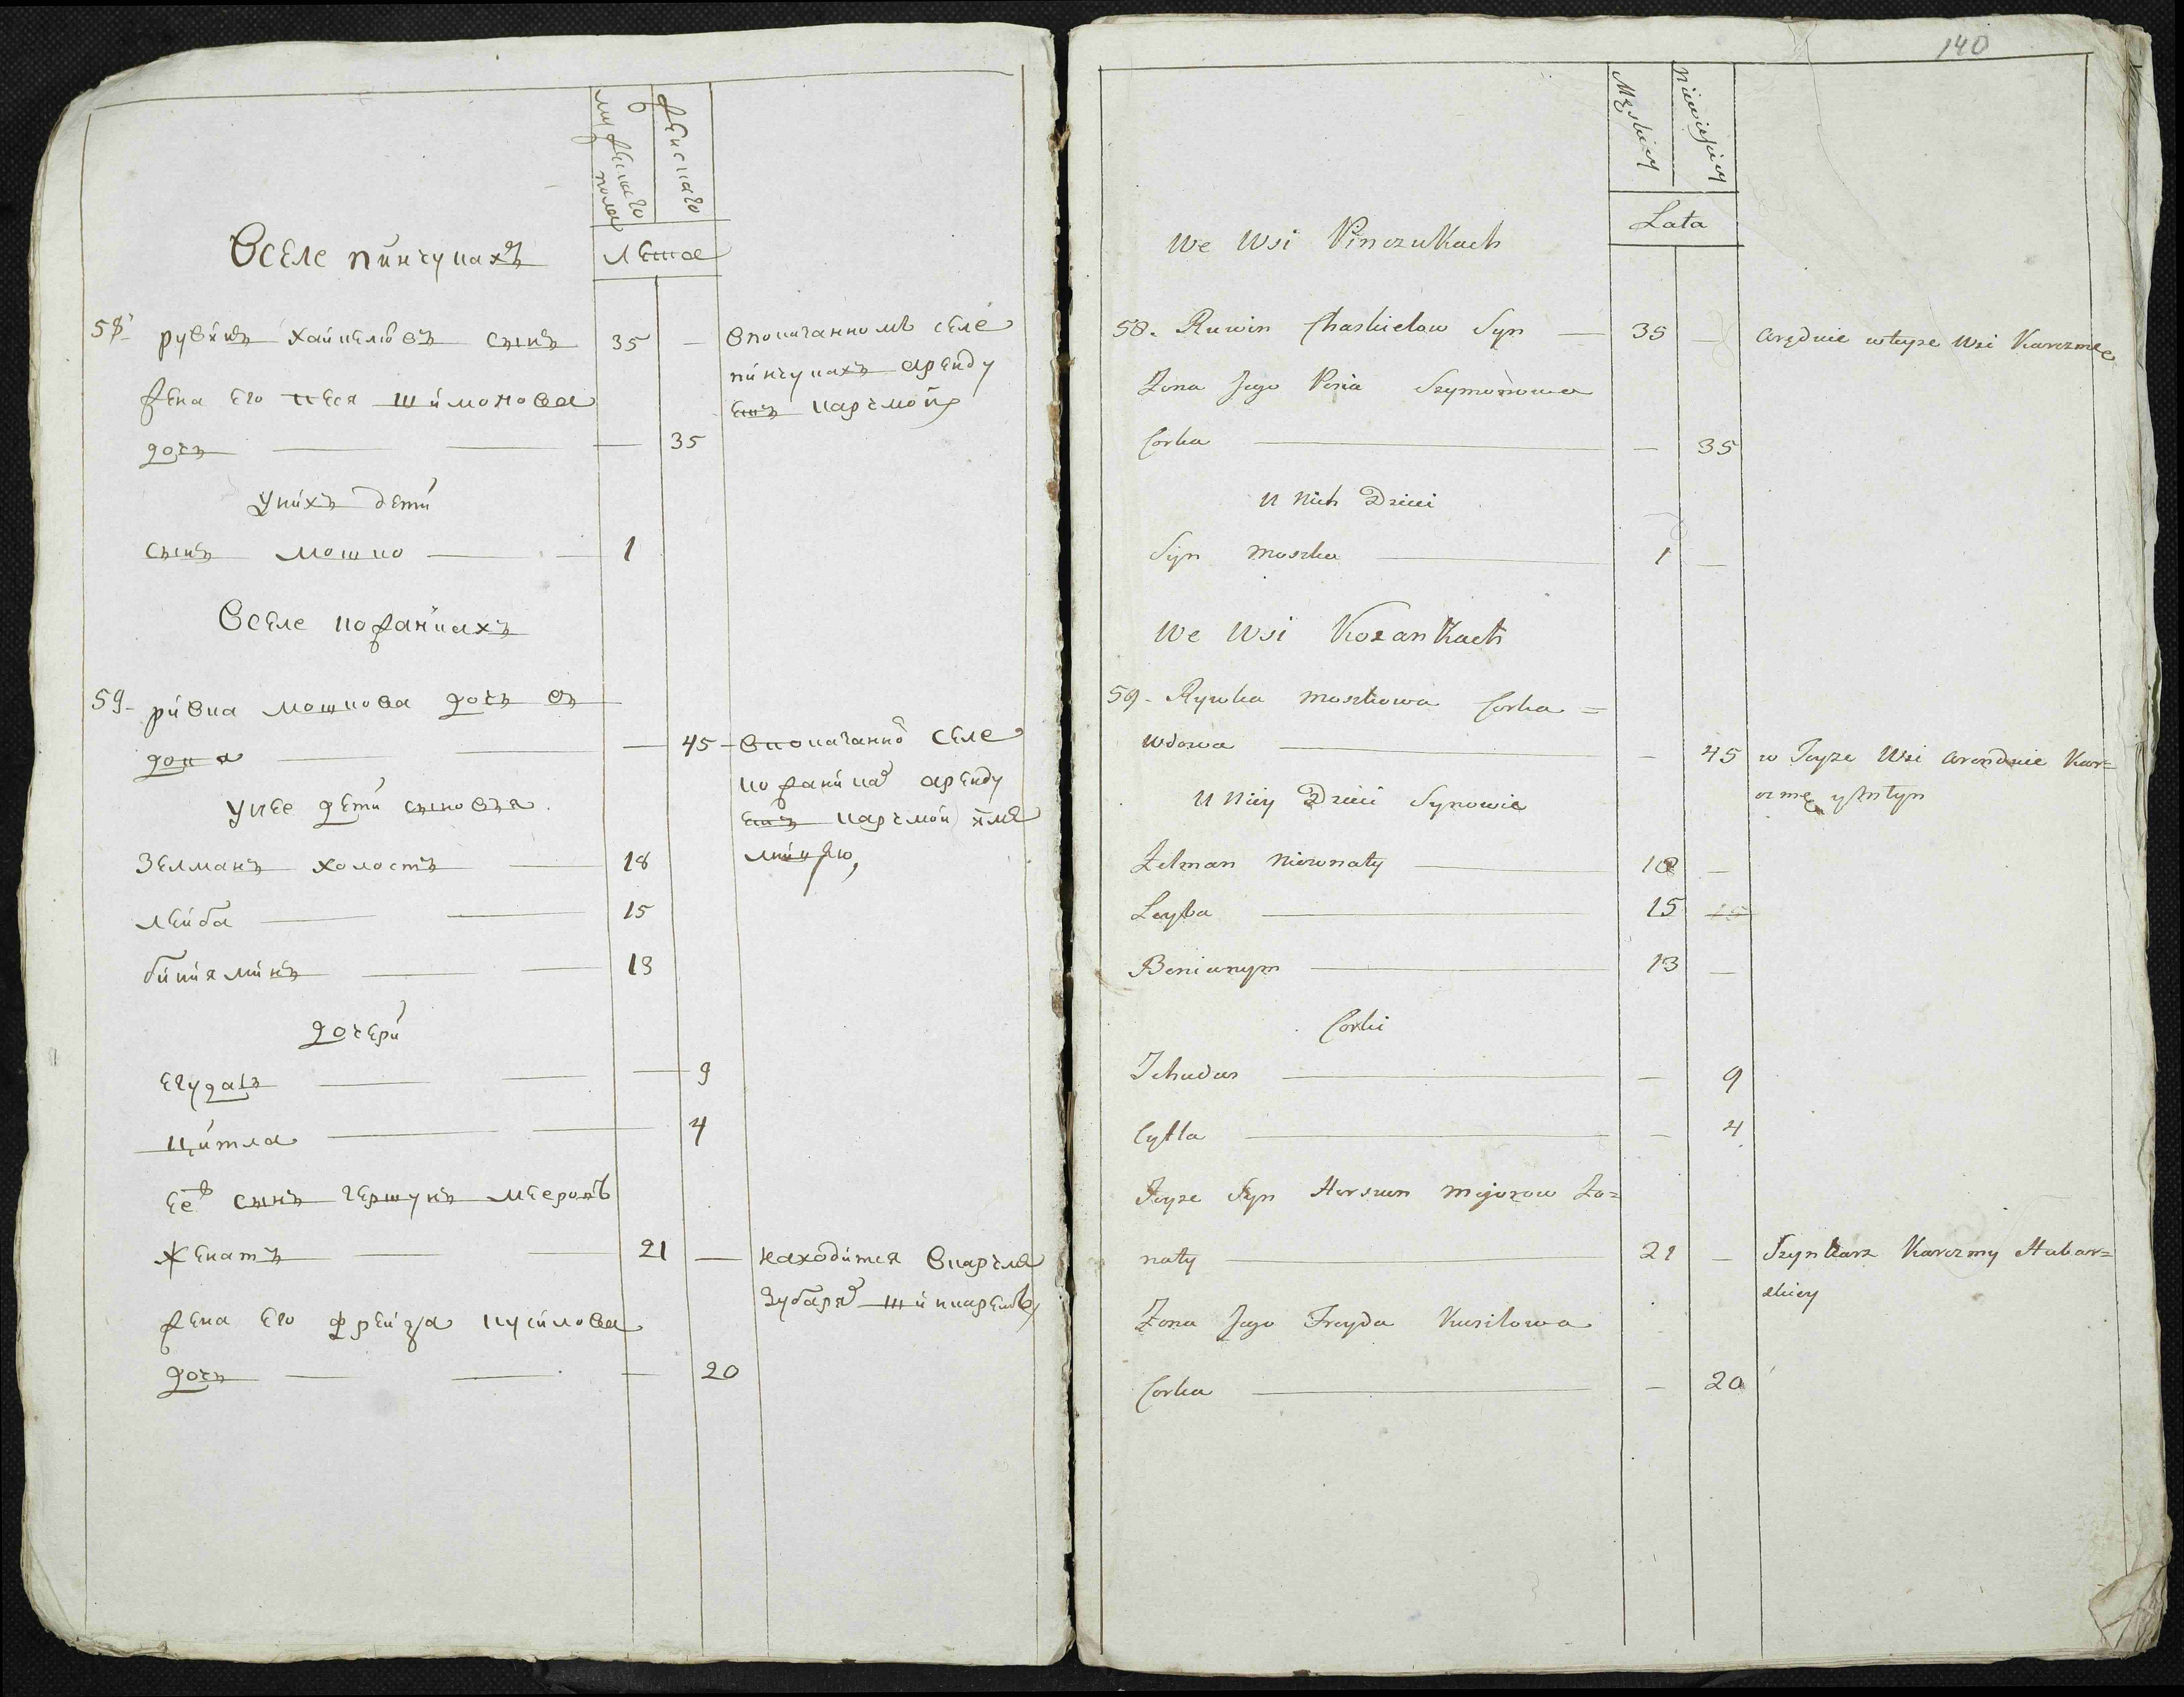 мужескаго пола
женскаго
Лета
Вселе пинчукахъ
58. рувинъ хаикелювъ сынъ — 35 —
впоказанномъ селе
пинчукахъ аренду
етъ карчмою
жена его песя шимонова
дочь — — — 35
Унихъ дети
сынъ мошко — — 1
Вселе кожанкахъ
59. ривка мошкова дочь в
дова — — — 45 –
впоказанно селе
кожанка аренду
етъ карчмои име
Унее дети сыновя
зелманъ холостъ — 18
леиба — — 15
биниаминъ — — 13
дочери
егудасъ — — — 9
цитла — — — 4
ее сынъ гершунъ мееровъ
женатъ — — 21 —
находится вкарчме
губаря шинкаремъ
жена его фреида кусилова
дочь — — — 20
140
Męskiey
Niewieściey
Lata
We Wsi Pinczukach
58. Ruwin Chaskielow Syn — 35 —
aręduie wteyze Wsi Karczmę
Zona Jego Pesia Szymonowa
Corka — — 35
U Nich Dzieci
Syn Moszka — 1 —
We Wsi Kozankach
59. Rywka Moszkowa Corka =
Wdowa — — 45
w Teyze Wsi arenduie Kar=
czmę y Młyn
U Niey Dzieci Synowie
Zelman Niezonaty — 18 —
Leyba — 15 15
Beniamyn — 13 —
Corki
Jehudas — — 9
Cytla — — 4
Teyze Syn Herszun Mejorow Zo=
naty — 21 —
Szynkarz Karczmy Hubar=
skiey
Zona Jego Freyda Kusilowa
Corka — — 20